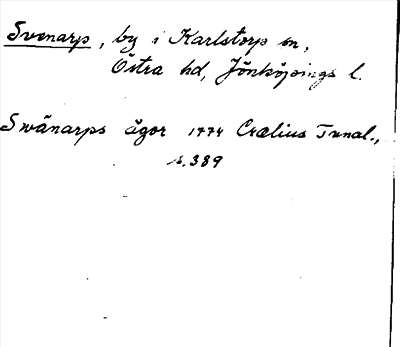 Svenarp, by i Karlstorp sn,
Östra hd, Jönköpings l.
Swänarps ägor 1774 Crælius Tunal.,
s. 389